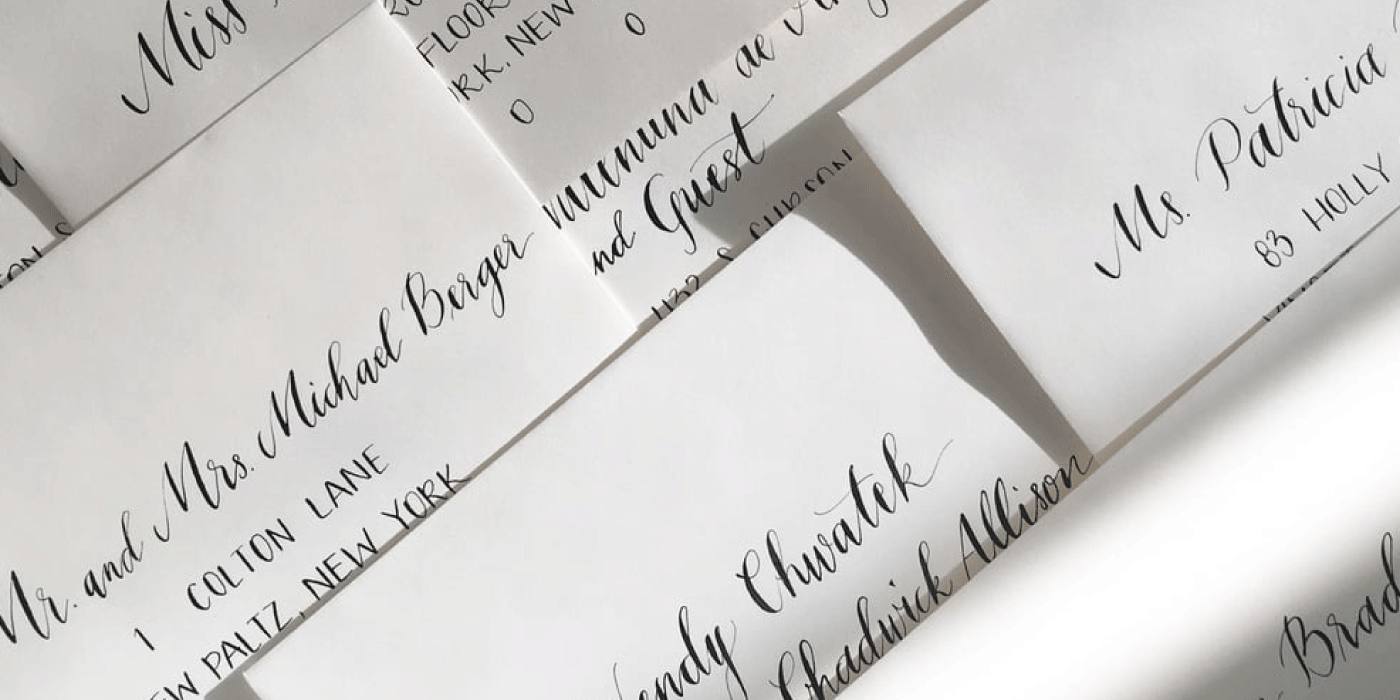 Miss
FLOOR
RK, NEW
0
0
nd Guest
Mr. and Mrs. Michael Berger
1 COLTON LANE
EW PALTZ, NEW YORK
Ms. Patricia
83 HOLLY
endy Chwatek
Chadwick Allison
Brad